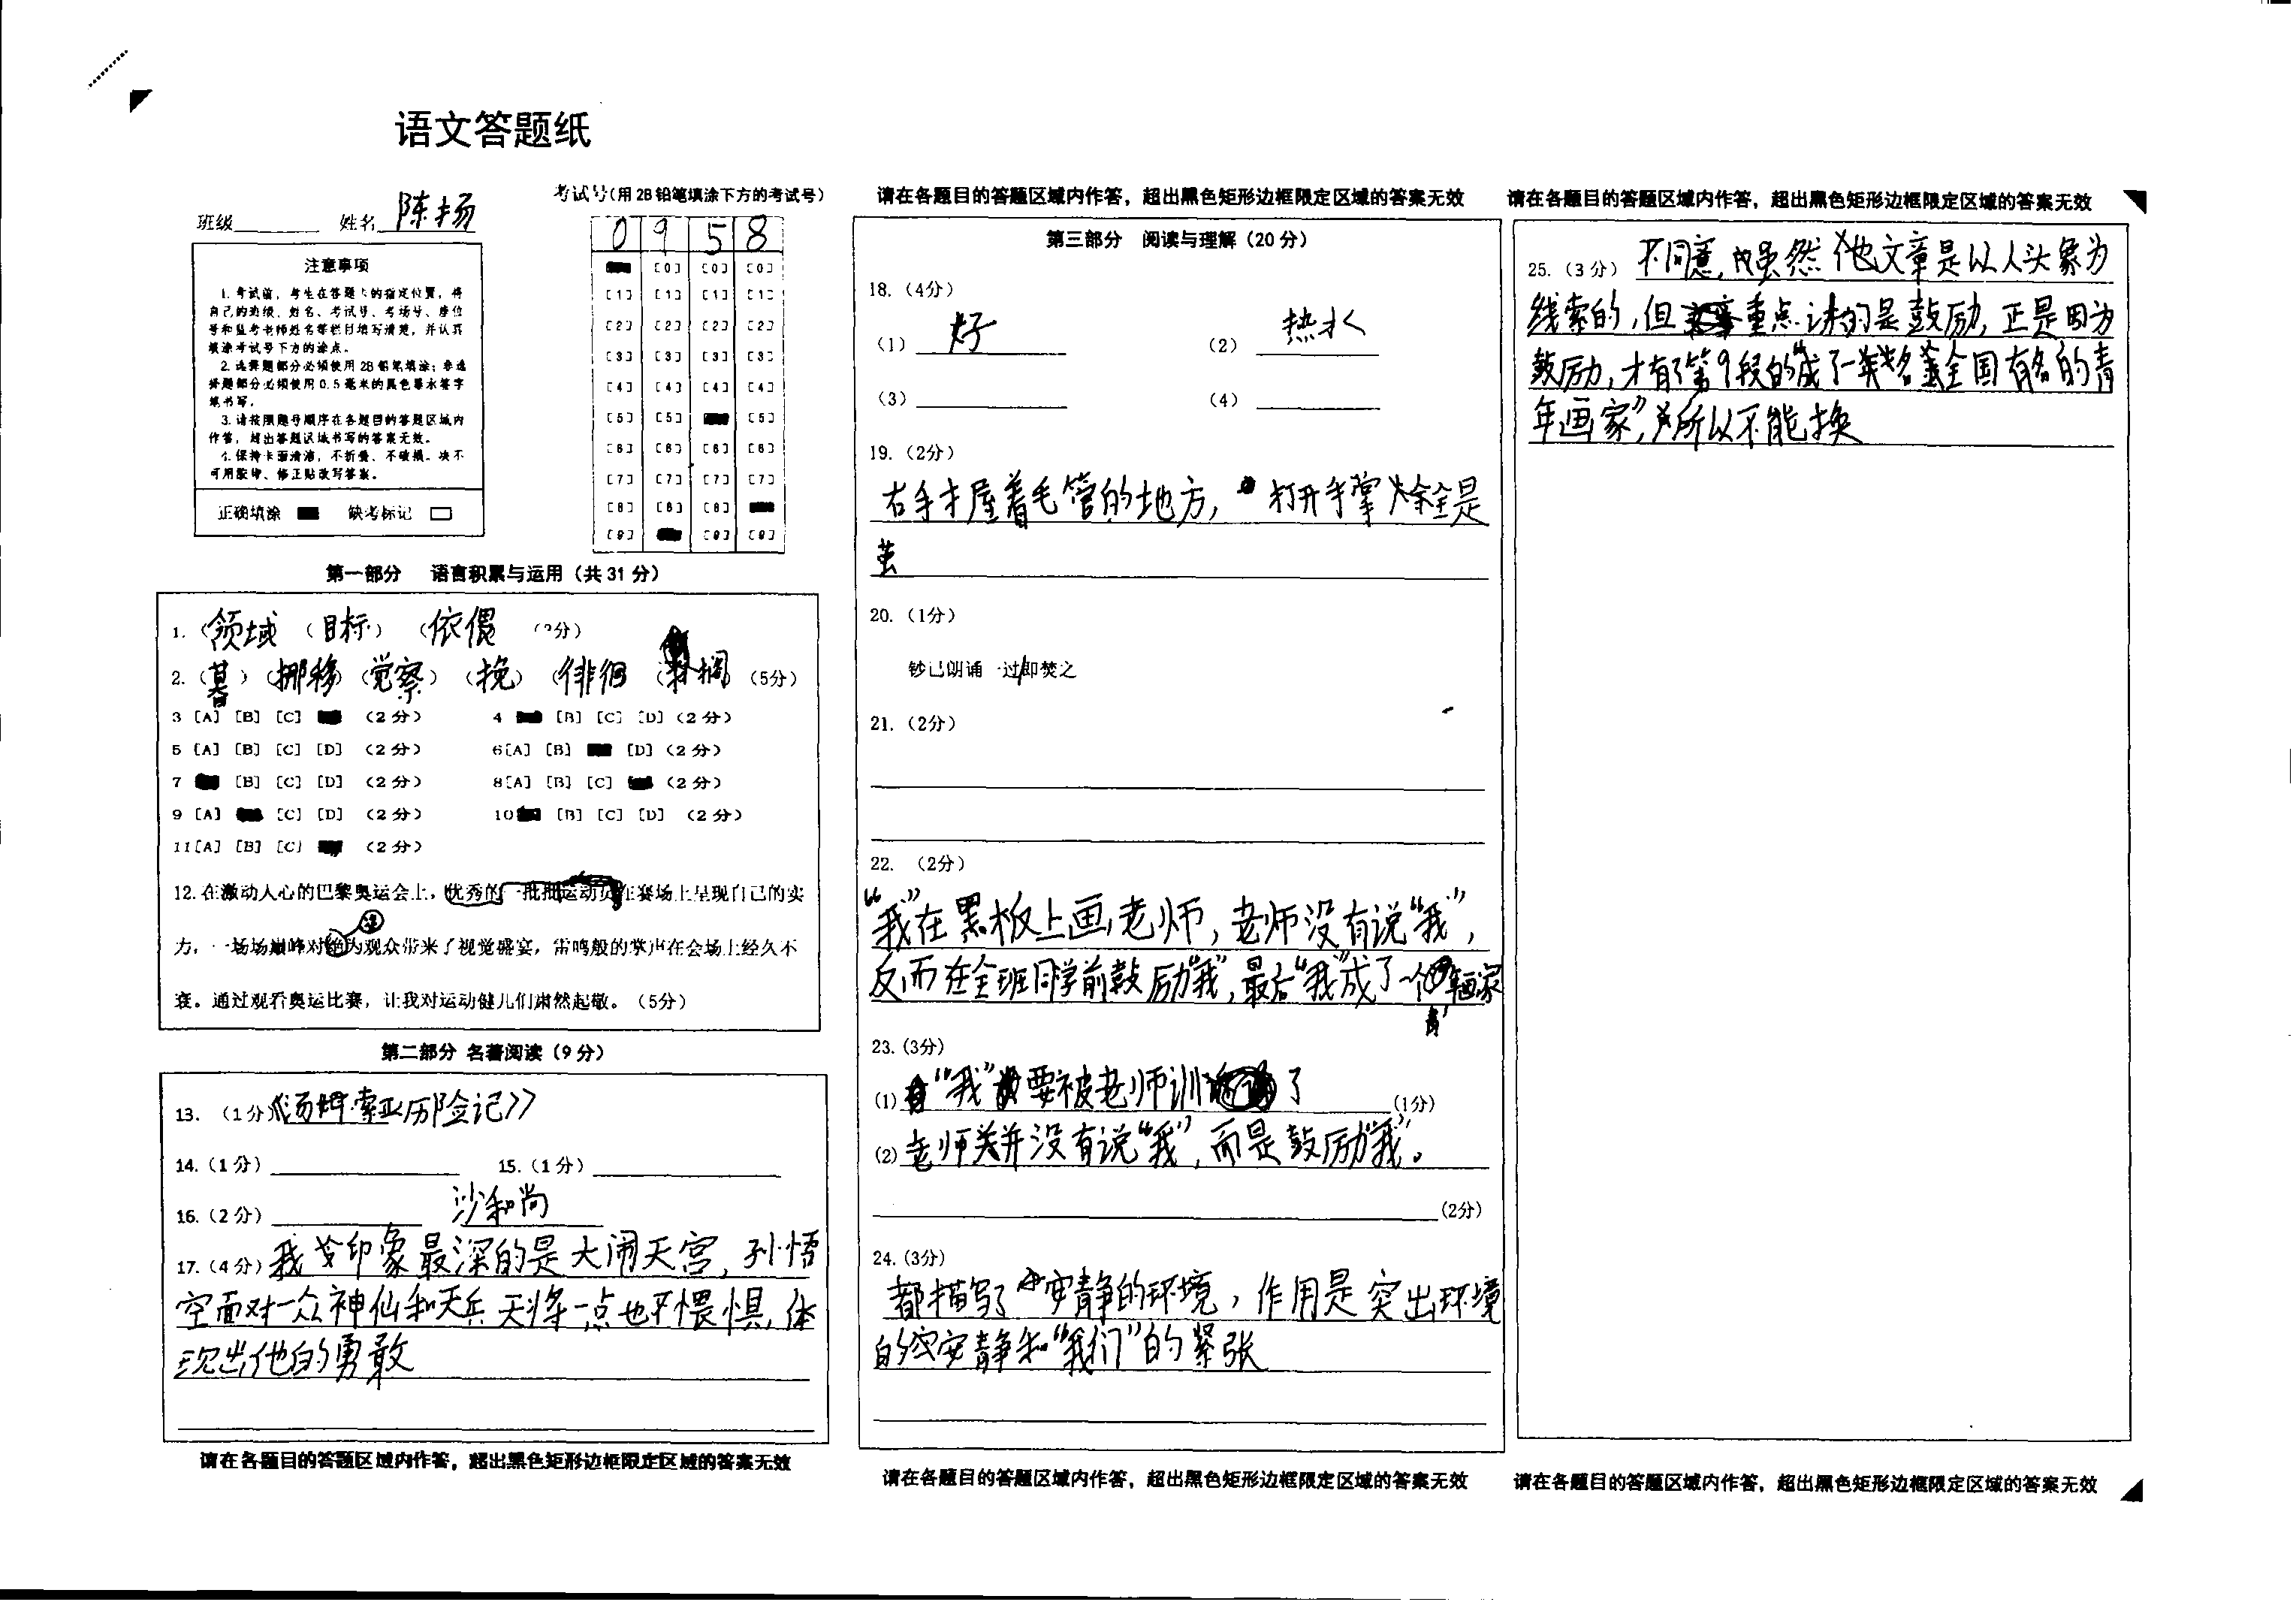 语文答题纸
班级 姓名 陈扬
考试号(用2B铅笔填涂下方的考试号)
0 9 5 8
[0] [0] [0]
[1] [1] [1] [1]
[2] [2] [2] [2]
[3] [3] [3] [3]
[4] [4] [4] [4]
[5] [5] [5]
[6] [6] [6] [6]
[7] [7] [7] [7]
[8] [8] [8]
[9] [9] [9]
注意事项
1.考试前,考生在答题卡的指定位置,将
自己的班级、姓名、考试号、考场号、座位
号和监考老师姓名等栏目填写清楚,并认真
填涂考试号下方的涂点。
2.选择题部分必须使用2B铅笔填涂;非选
择题部分必须使用0.5毫米的黑色墨水签字
笔书写。
3.请按照题号顺序在各题目的答题区域内
作答,超出答题区域书写的答案无效。
4.保持卡面清洁,不折叠、不破损。决不
可用胶带、修正贴改写答案。
正确填涂 缺考标记
第一部分 语言积累与运用(共31分)
1.(领域 (目标) (依偎 (2分)
2.(暮)(挪移)(觉察)(挽)(徘徊 ( 搁)(5分)
3 [A] [B] [C] (2分) 4 [B] [C] [D](2分)
5 [A] [B] [C] [D] (2分) 6[A] [B] [D](2分)
7 [B] [C] [D] (2分) 8[A] [B] [C] (2分)
9 [A] [C] [D] (2分) 10 [B] [C] [D] (2分)
11[A] [B] [C] (2分)
12.在激动人心的巴黎奥运会上,优秀的一批批运动员在赛场上呈现自己的实
力,一场场巅峰对绝为观众带来了视觉盛宴,雷鸣般的掌声在会场上经久不
衰。通过观看奥运比赛,让我对运动健儿们肃然起敬。(5分)
第二部分 名著阅读(9分)
13.(1分)《汤姆·索亚历险记》
14.(1分) 15.(1分)
16.(2分) 沙和尚
17.(4分)我 印象最深的是大闹天宫,孙悟
空面对一众神仙和天兵天将一点也不惧惧,体
现出他的勇敢
请在各题目的答题区域内作答,超出黑色矩形边框限定区域的答案无效
请在各题目的答题区域内作答,超出黑色矩形边框限定区域的答案无效
第三部分 阅读与理解(20分)
18.(4分)
(1) 好 (2) 热水
(3) (4)
19.(2分)
右手才屋着毛管的地方, 打开手掌 全是
茧
20.(1分)
钞已朗诵一过/即焚之
21.(2分)
22.(2分)
“我”在黑板上画老师,老师没有说“我”,
反而在全班同学前鼓励“我”,最后“我”成了一個青年画家
23.(3分)
(1) “我”要被老师训 了 (1分)
(2)老师并没有说“我”,而是鼓励“我”。
(2分)
24.(3分)
都描写了安静的环境,作用是突出环境
的安静和“我们”的紧张
请在各题目的答题区域内作答,超出黑色矩形边框限定区域的答案无效
请在各题目的答题区域内作答,超出黑色矩形边框限定区域的答案无效
25.(3分)不同意,虽然他文章是以人头象为
线索的,但 重点讲的是鼓励,正是因为
鼓励,才有了第9段的“成了一 名 全国有名的青
年画家”,所以不能换
请在各题目的答题区域内作答,超出黑色矩形边框限定区域的答案无效